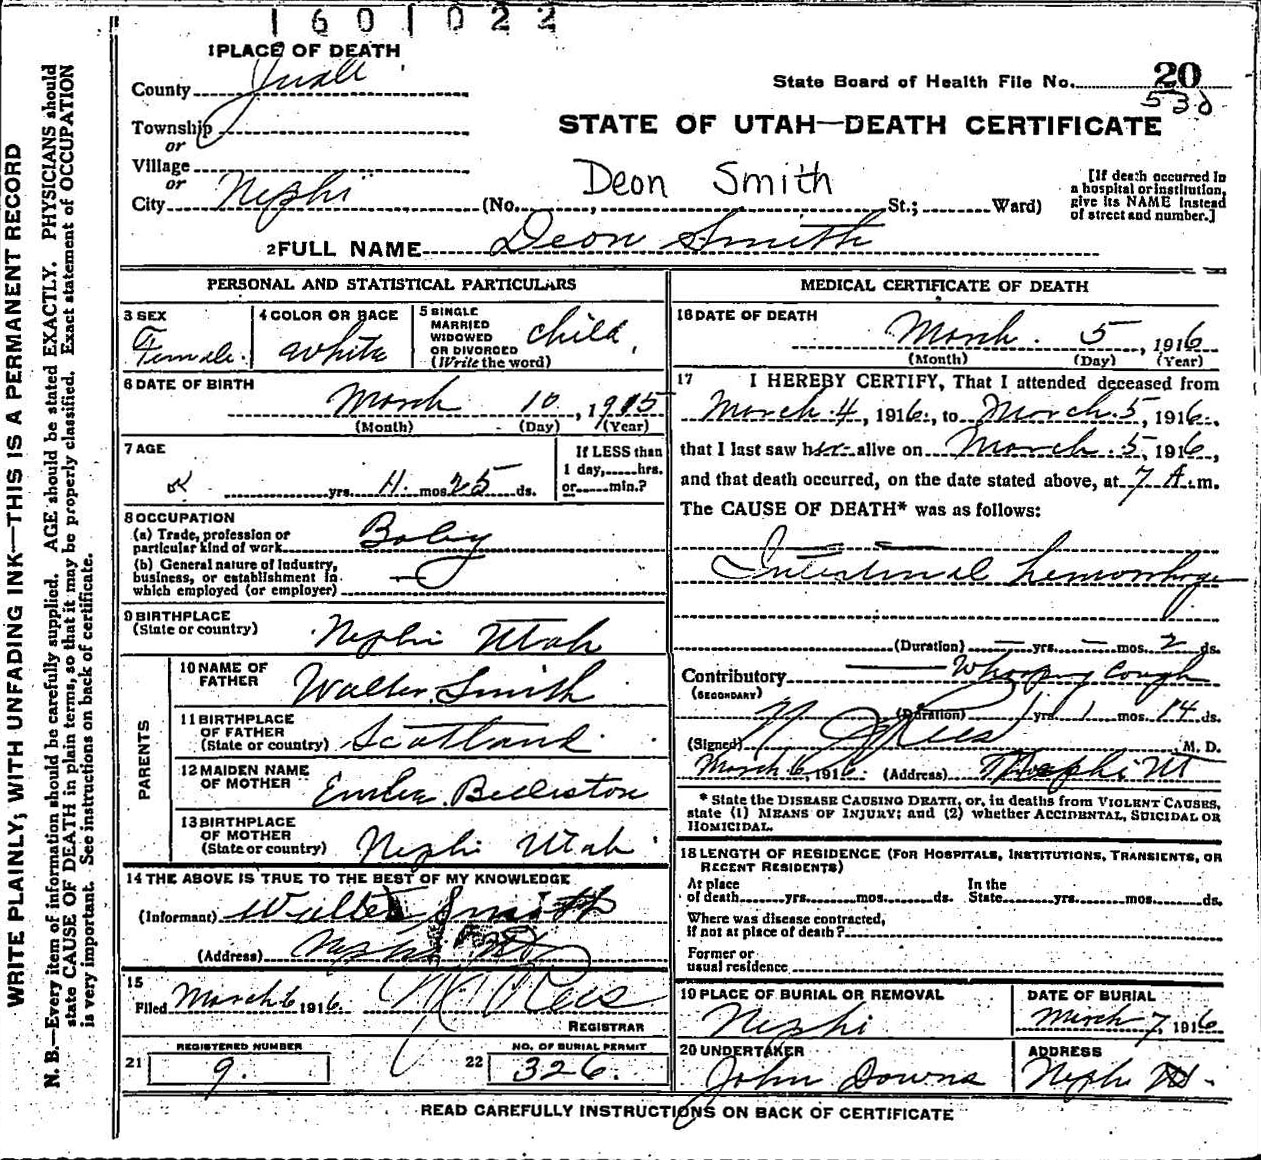 1601022
1 PLACE OF DEATH
County Juab
State Board of Health File No. 20
530
Township
or
Village
or
City Nephi (No. , St.; Ward)
STATE OF UTAH—DEATH CERTIFICATE
Deon Smith
[If death occurred in
a hospital or institution,
give its NAME instead
of street and number.]
2 FULL NAME Deon Smith
PERSONAL AND STATISTICAL PARTICULARS
3 SEX
Female.
4 COLOR OR RACE
White
5 SINGLE
MARRIED
WIDOWED
OR DIVORCED
(Write the word)
child.
6 DATE OF BIRTH
March 10, 1915
(Month) (Day) (Year)
7 AGE
yrs. 11. mos. 25 ds.
If LESS than
1 day, hrs.
or min.?
8 OCCUPATION
(a) Trade, profession or
particular kind of work Baby
(b) General nature of Industry,
business, or establishment in
which employed (or employer)
9 BIRTHPLACE
(State or country) Nephi Utah
PARENTS
10 NAME OF
FATHER Walter Smith
11 BIRTHPLACE
OF FATHER
(State or country) Scotland.
12 MAIDEN NAME
OF MOTHER
13 BIRTHPLACE
OF MOTHER
(State or country) Nephi Utah
14 THE ABOVE IS TRUE TO THE BEST OF MY KNOWLEDGE
(Informant) Walter Smith
(Address) Nephi
15
Filed March 6 1916. Rees
REGISTRAR
REGISTERED NUMBER
21 9.
NO. OF BURIAL PERMIT
22 326.
MEDICAL CERTIFICATE OF DEATH
16 DATE OF DEATH
March. 5, 1916
(Month) (Day) (Year)
17 I HEREBY CERTIFY, That I attended deceased from
March 4, 1916, to March 5, 1916,
that I last saw her alive on March 5, 1916,
and that death occurred, on the date stated above, at 7 A.m.
The CAUSE OF DEATH* was as follows:
Intestinal hemorrhage
(Duration) yrs. mos. 2 ds.
Contributory Whooping Cough
(SECONDARY)
(Duration) yrs. 1 mos. 14 ds.
(Signed) Rees M. D.
March 6, 1916 (Address) Nephi Ut
* State the DISEASE CAUSING DEATH, or, in deaths from VIOLENT CAUSES,
state (1) MEANS OF INJURY; and (2) whether ACCIDENTAL, SUICIDAL OR
HOMICIDAL.
18 LENGTH OF RESIDENCE (FOR HOSPITALS, INSTITUTIONS, TRANSIENTS, OR
RECENT RESIDENTS)
At place
of death yrs. mos. ds.
In the
State yrs. mos. ds.
Where was disease contracted,
If not at place of death?
Former or
usual residence
19 PLACE OF BURIAL OR REMOVAL
Nephi
DATE OF BURIAL
March 7, 1916
20 UNDERTAKER
John Downs
ADDRESS
Nephi Ut.
READ CAREFULLY INSTRUCTIONS ON BACK OF CERTIFICATE
WRITE PLAINLY, WITH UNFADING INK—THIS IS A PERMANENT RECORD
N. B.—Every item of information should be carefully supplied. AGE should be stated EXACTLY. PHYSICIANS should
state CAUSE OF DEATH in plain terms, so that it may be properly classified. Exact statement of OCCUPATION
is very important. See instructions on back of certificate.